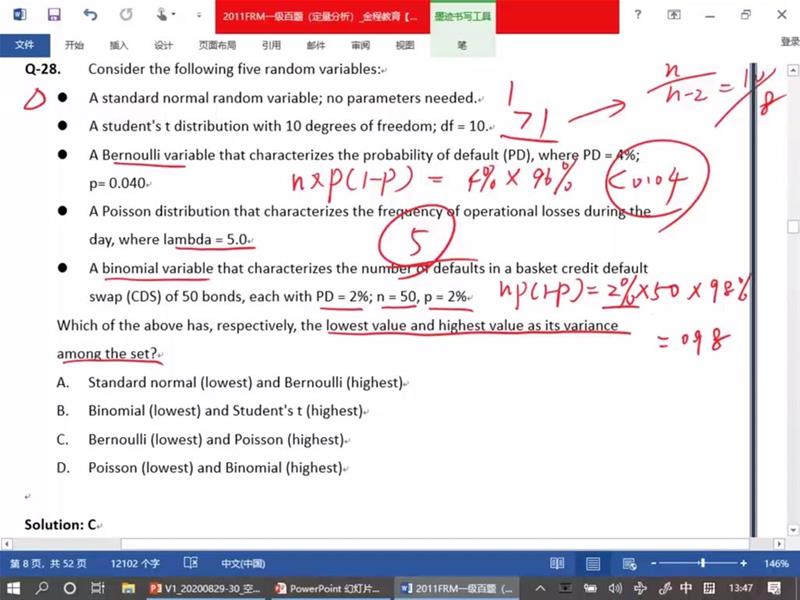 2011FRM一级百题（定量分析）_金程教育【...
墨迹书写工具
文件 开始 插入 设计 页面布局 引用 邮件 审阅 视图 笔 登录
Q-28. Consider the following five random variables:
● A standard normal random variable; no parameters needed. 1
n/n-2 = 10/8
● A student's t distribution with 10 degrees of freedom; df = 10. >1
● A Bernoulli variable that characterizes the probability of default (PD), where PD = 4%;
p= 0.040
n×p(1-p) = 4% × 96% <0.04
● A Poisson distribution that characterizes the frequency of operational losses during the
day, where lambda = 5.0
5
● A binomial variable that characterizes the number of defaults in a basket credit default
swap (CDS) of 50 bonds, each with PD = 2%; n = 50, p = 2%
np(1-p) = 2% × 50 × 98%
= 0.98
Which of the above has, respectively, the lowest value and highest value as its variance
among the set?
A. Standard normal (lowest) and Bernoulli (highest)
B. Binomial (lowest) and Student's t (highest)
C. Bernoulli (lowest) and Poisson (highest)
D. Poisson (lowest) and Binomial (highest)
Solution: C
第 8 页，共 52 页 12102 个字 中文(中国) 146%
V1_20200829-30_空... PowerPoint 幻灯片... 2011FRM一级百题... 中 13:47